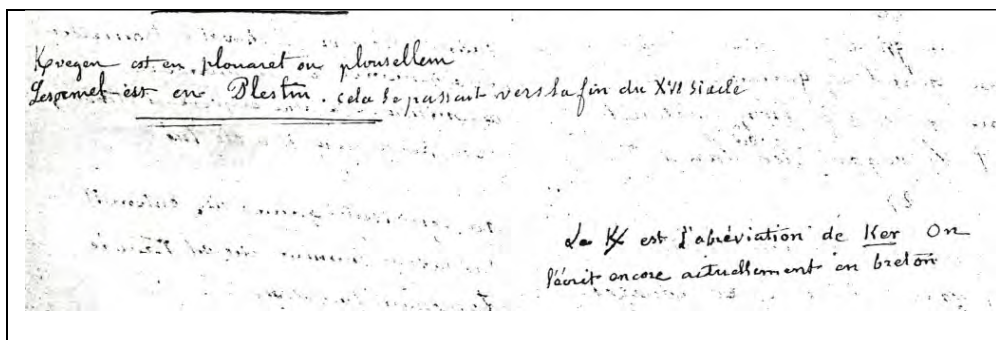 Ꝃvegen est en plouaret ou plousellem
Lesormel est en Plestin. cela se passait vers la fin du XVI siècle
Le Ꝃ est l'abréviation de Ker On
l'écrit encore actuellement en breton